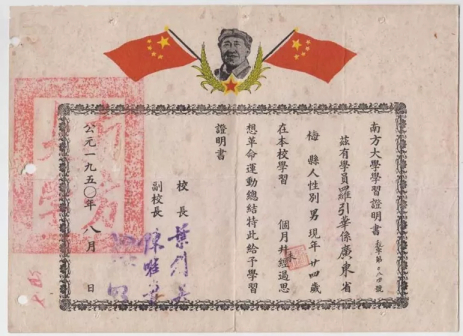 南方大學學習證明書
茲有學員羅引華係廣東省
梅縣人性別男現年廿四歲
在本校學習 個月並經過思
想革命運動總結特此給予學習
證明書
校長葉劍英
副校長陳唯實
公元一九五〇年八月 日